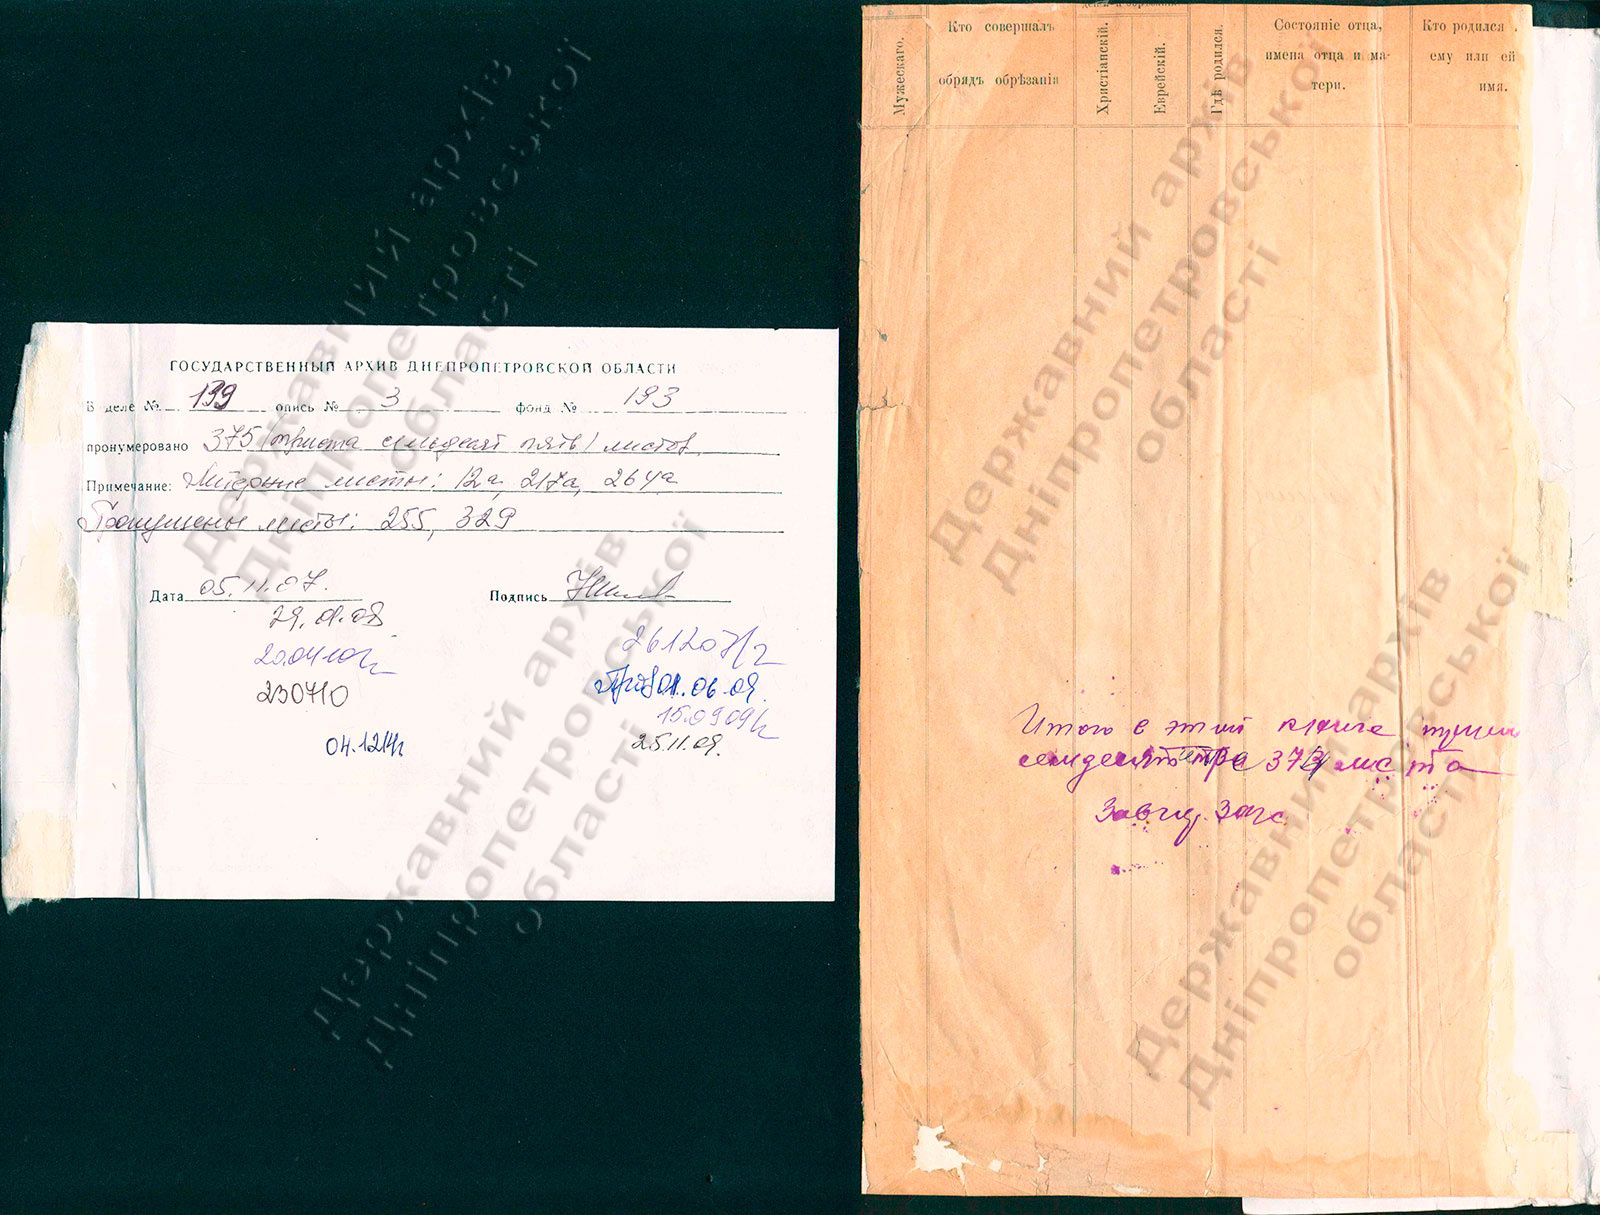 ГОСУДАРСТВЕННЫЙ АРХИВ ДНЕПРОПЕТРОВСКОЙ ОБЛАСТИ
В деле № 139 опись № 3 фонд № 193
пронумеровано 375 (триста семьдесят пять) листов
Примечание: Литерные листы: 12а, 217а, 264а
Пропущены листы: 255, 329
Дата 05.11.07. Подпись
29.01.08
261207
20.04.10
01.06.09.
230710
15.09.09
04.12.14
25.11.09.
Мужескаго.
Кто совершалъ
обрядъ обрѣзанія
Христіанскій.
Еврейскій.
Гдѣ родился.
Состояніе отца,
имена отца и ма-
тери.
Кто родился
ему или ей
имя.
Итого в этой книге
семьдесят три 373 листа
Завед. Загс
Державний архів
Дніпропетровської
області
Державний архів
Дніпропетровської
області
Державний архів
Дніпропетровської
області
Державний архів
Дніпропетровської
області